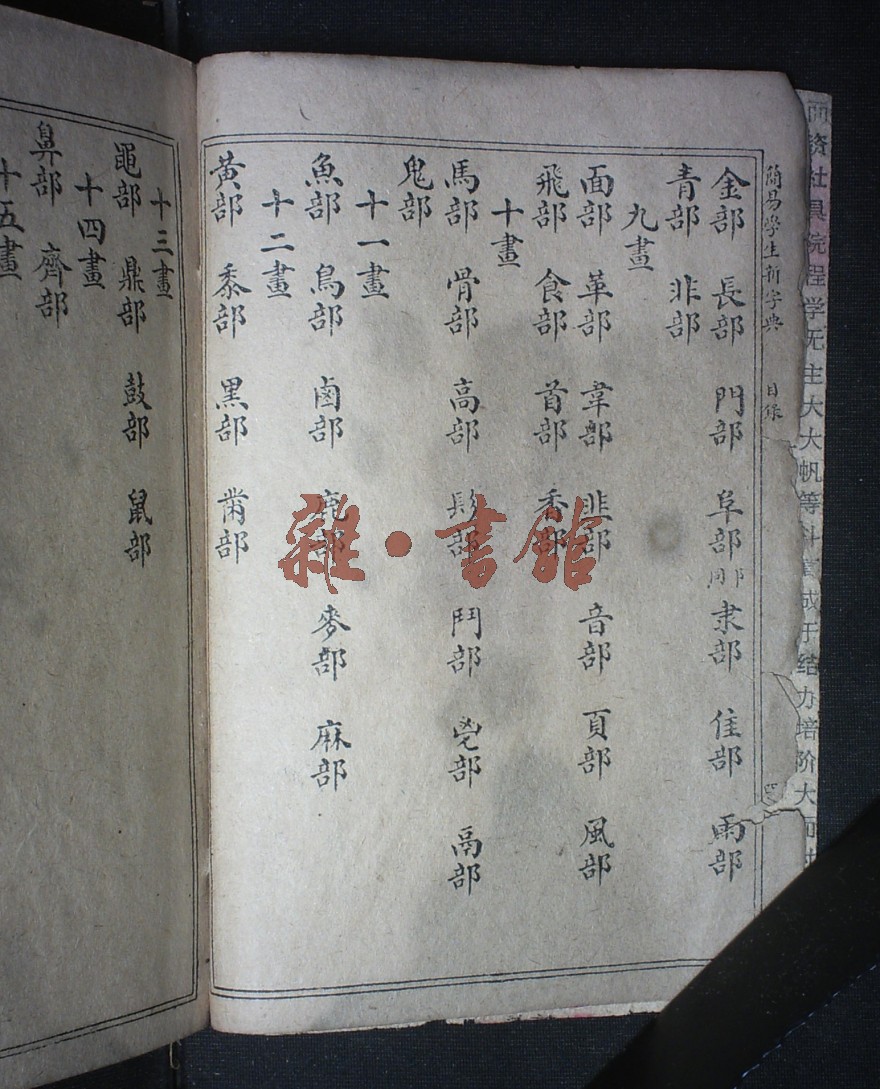 簡易學生新字典 目錄
金部 長部 門部 阜部 隶部 隹部 雨部
青部 非部
九畫
面部 革部 韋部 韭部 音部 頁部 風部
飛部 食部 首部 香部
十畫
馬部 骨部 高部 髟部 鬥部 鬯部 鬲部
鬼部
十一畫
魚部 鳥部 鹵部 鹿部 麥部 麻部
十二畫
黃部 黍部 黑部 黹部
十三畫
黽部 鼎部 鼓部 鼠部
十四畫
鼻部 齊部
十五畫
雜·書館